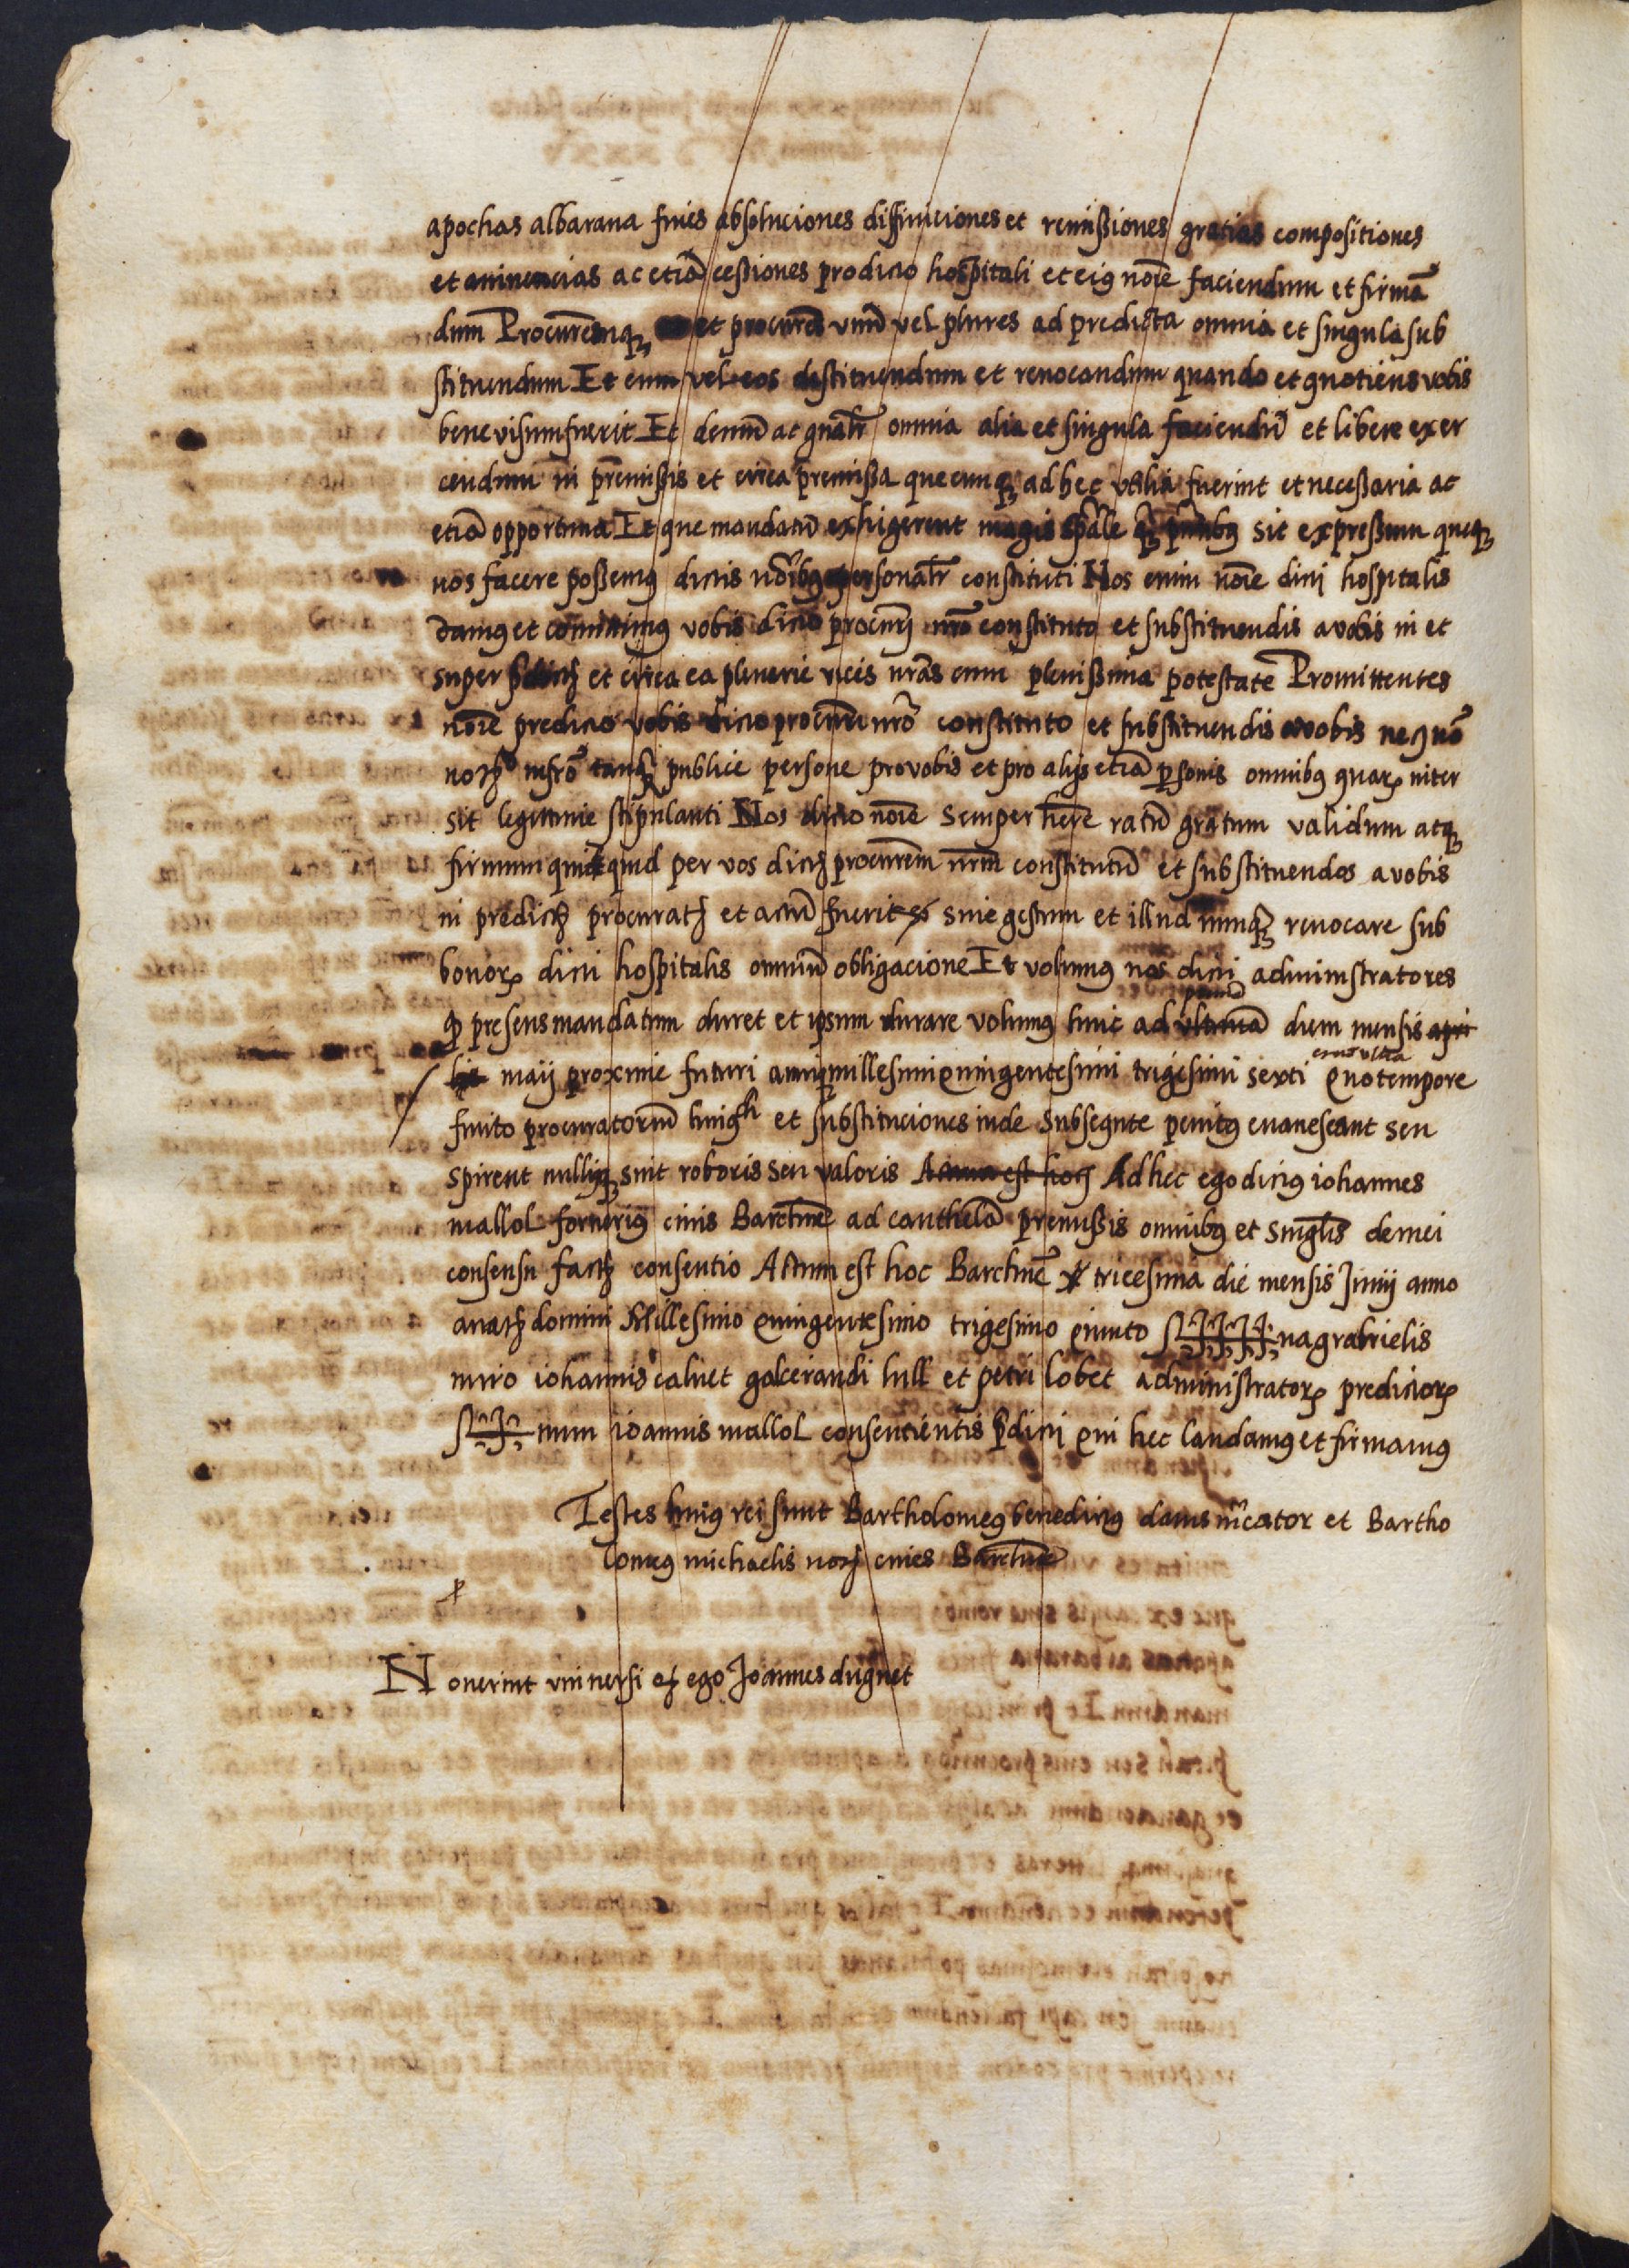 apochas albarana fines absoluciones diffiniciones et remissiones gratias compositiones
et avinencias ac etiã cessiones pro dicto hospitali et eiꝰ noiẽ faciendum et firmã
dum Procurẽmqꝫ et procurẽs vnũ vel plures ad predicta omnia et singula sub
stituendum Et eum vel eos destituendum et revocandum quando et quotiens vobis
bene visum fuerit Et demũ ac gñalr̃ omnia alia et singula faciendũ et libere exer
cendum in prẽmissis et circa premissa quecunqꝫ ad hec vtilia fuerint et necessaria ac
etiã opportuna Et que mandatũ exhigerent magis spãle qꝫ pñtibꝰ sit expressum queqꝫ
nos facere possemꝰ dictis noĩbꝰ personalr̃ constituti Nos enim noiẽ dicti hospitalis
damꝰ et comittimꝰ vobis dicto procurj nr̃o constituto et substituendis a vobis in et
super p̃dictꝭ et circa ea plenarie vices nr̃as cum plenissima potestate Promittentes
noiẽ predicto vobis dicto procurj nr̃o constituto et substituendis a vobis necnõ
notꝰ infrõ tanqꝫ publice persone pro vobis et pro alijs etiã ꝑsonis omnibꝰ quarꝝ inter
sit legittime stipulanti Nos dicto noiẽ semper hẽre ratũ gratum validum atqꝫ
firmum quidquid per vos dictꝫ procurẽm nr̃m constitutũ et substituendos a vobis
in predictꝭ procuratꝫ et actũ fuerit siue gestum et illud nunqꝫ revocare sub
bonorꝝ dicti hospitalis omniũ obligacione Et volumꝰ nos dicti administratores
primũ
ꝙ presens mandatum duret et ipsum durare volumꝰ hinc ad vltimã diem mensis apri
lis maij proxime futuri anni millesimi quingentesimi trigesimi sexti Quo tempore
finito procuratoriũ huiꝰ et substituciones inde subsequte penitꝰ evanescant seu
spirent nulliꝰqꝫ sint roboris seu valoris Actum est hoc Ad hec ego dictꝰ iohannes
mallol fornerius civis Barchnẽ ad cauthelã premissis omnibꝰ et singlis de mei
consensu factꝭ consentio Actum est hoc Barchnẽ tricesima die mensis Junij anno
a natꝫ domini Millesimo quingentesimo trigesimo quinto S na gabrielis
miro iohannis calvet galcerandi lull et petri lobet administratorꝝ predictorꝝ
S num ioannis mallol consencientis p̃dicti qui hec laudamꝰ et firmamꝰ
Testes huiꝰ rei sunt Bartholomeꝰ benedictꝰ damꝰ mc̃ator et Bartho
lomeꝰ michaelis notꝫ cives Barchnẽ
Noverint vniversi ꝙ ego Joannes dugnet